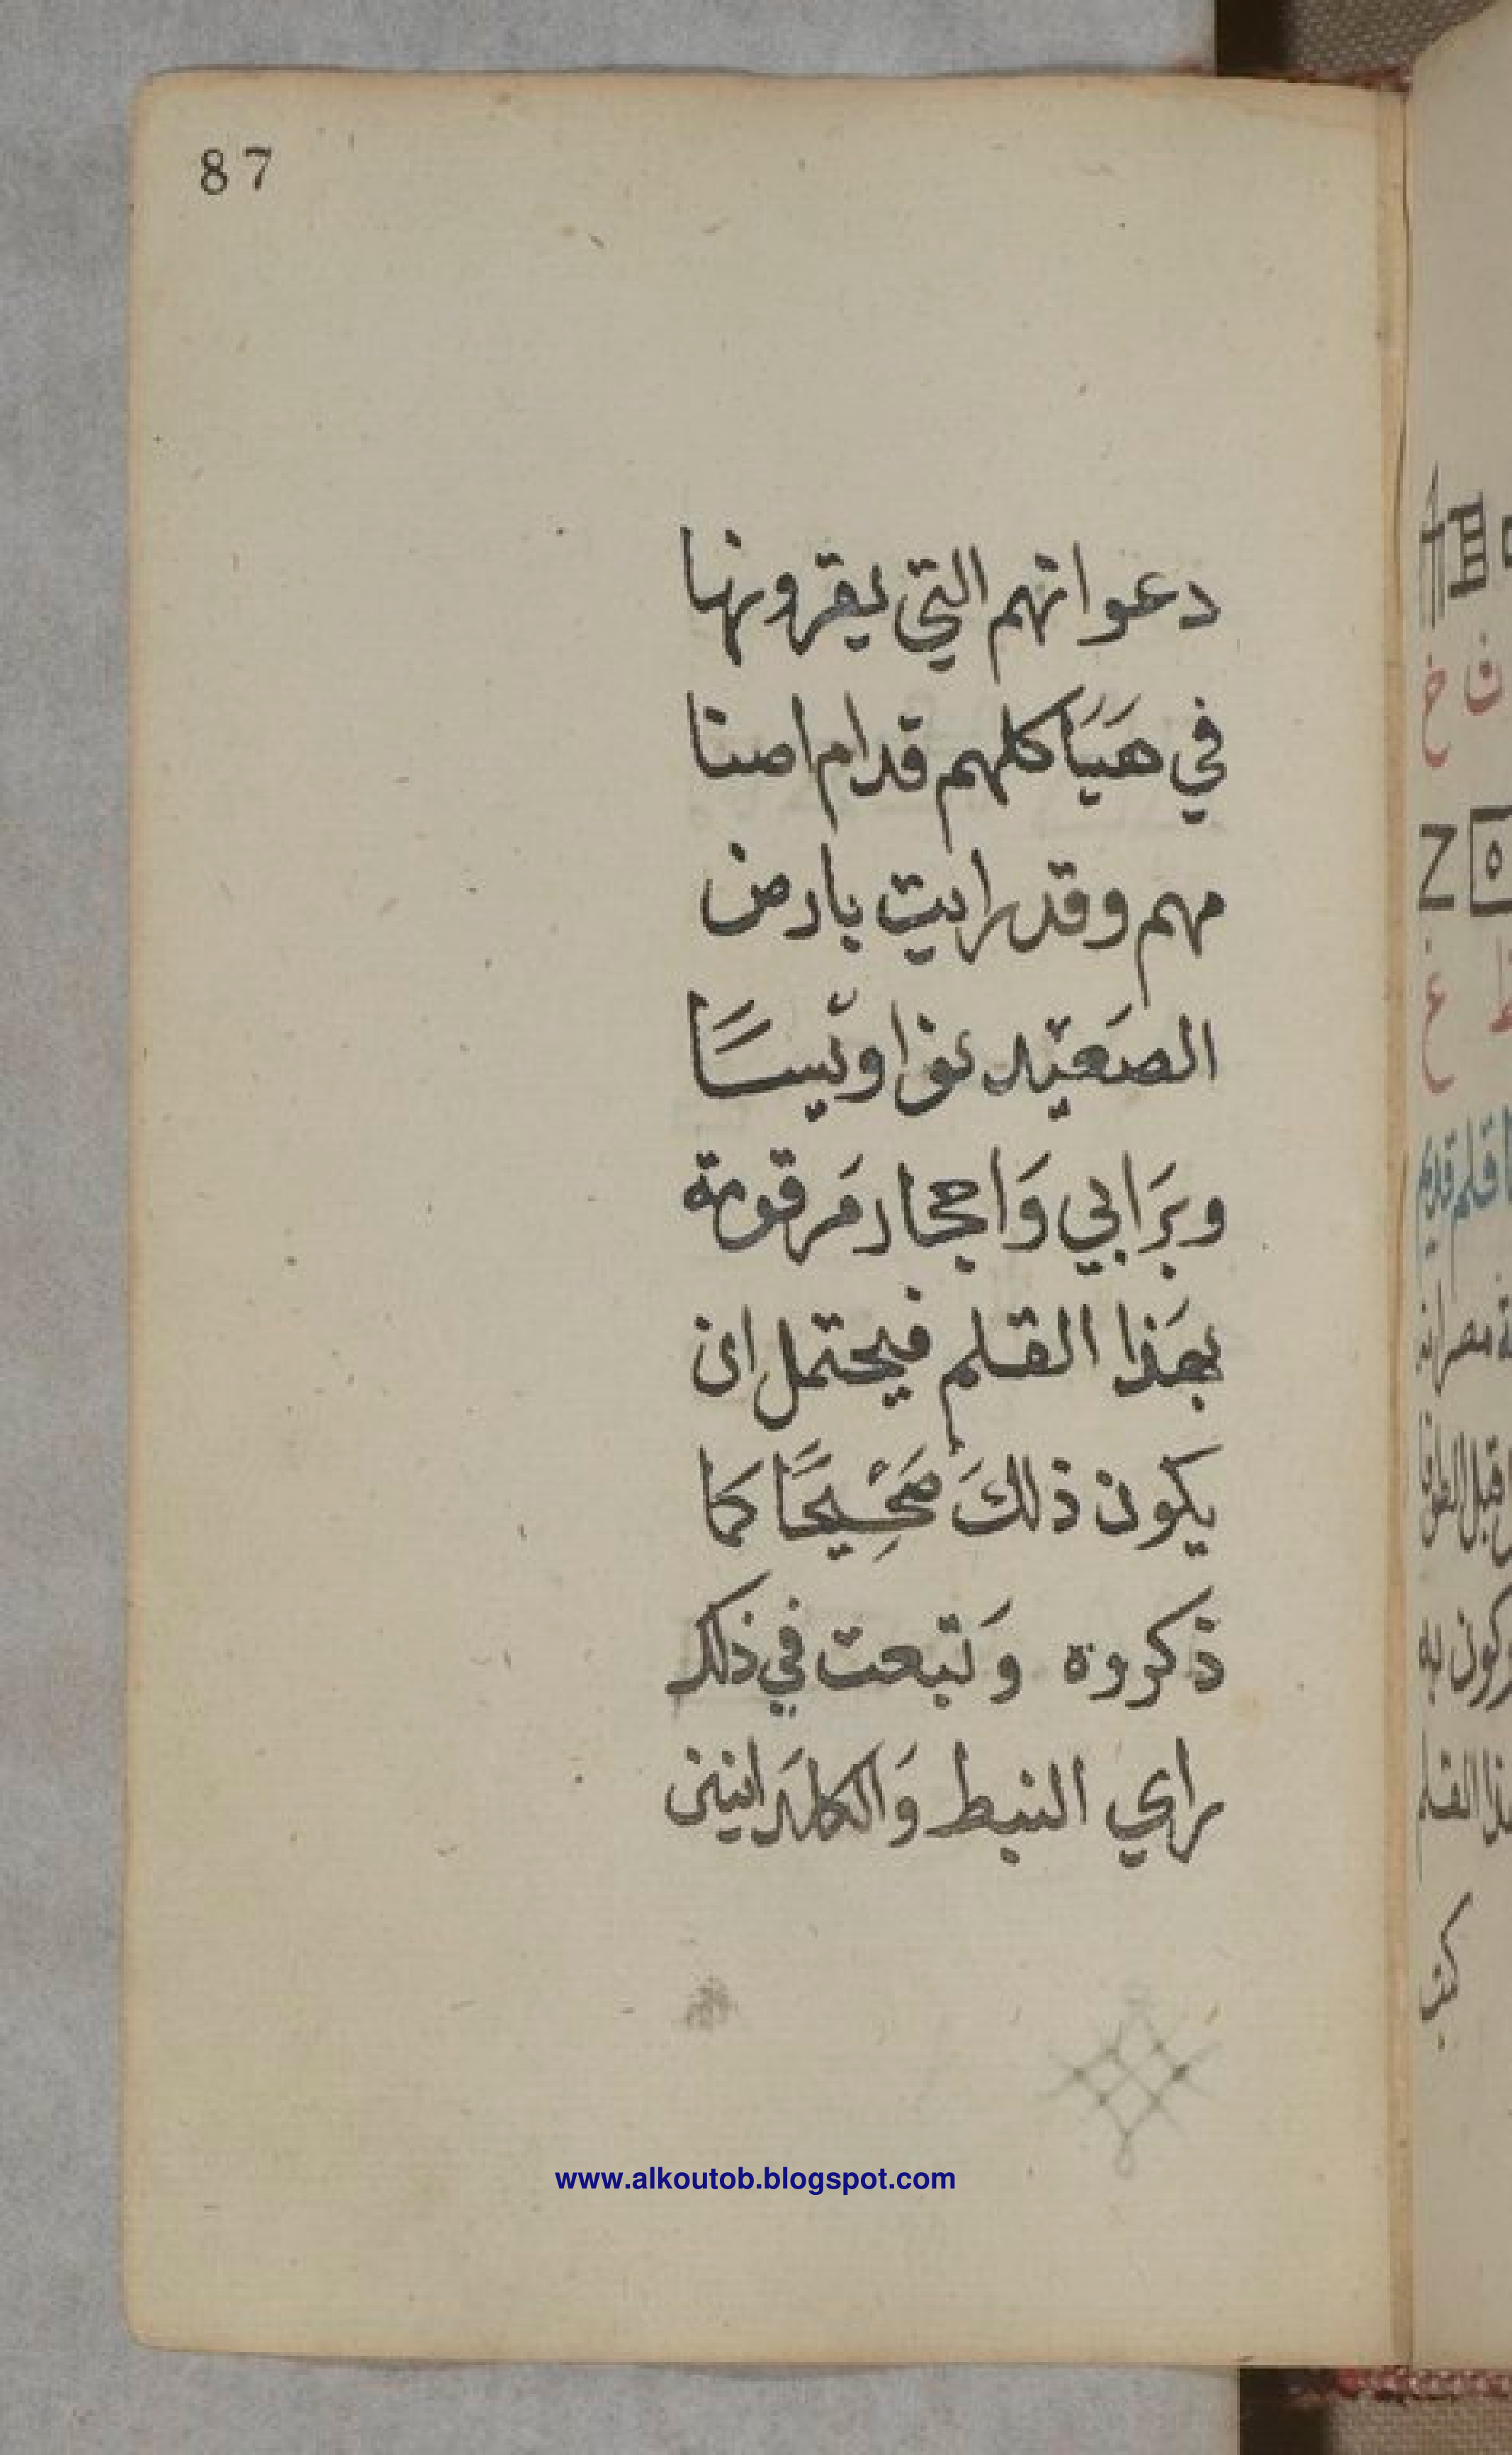 87
دعواتهم التي يقرونها
في هَيَاكلهم قدام اصنا
مهم وقد رايت بارض
الصَعيد نواويسًا
وبَرَابي وَاحجار مَرقومة
بهَذا القلم فيحتمل ان
يكون ذلكَ صَحْيِحًا كما
ذكروه وَتبعت في ذلك
راي النبط وَالكلدَانين
www.alkoutob.blogspot.com